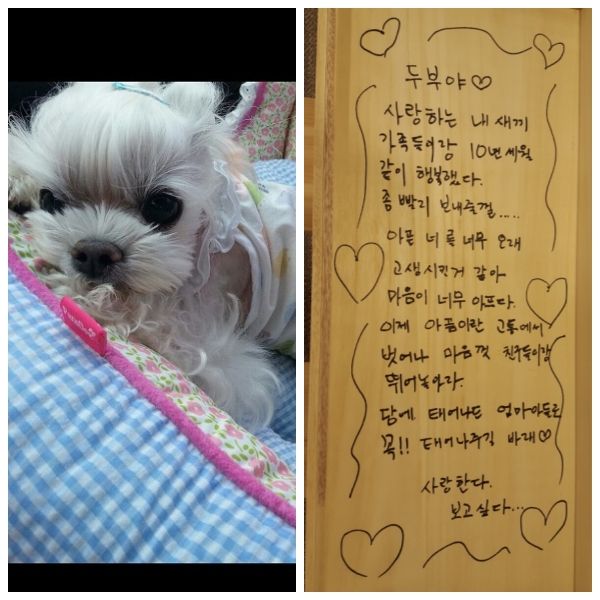 두부야♡
사랑하는 내 새끼
가족들이랑 10년 세월
같이 행복했다.
좀 빨리 보내줄껄.....
아픈 너를 너무 오래
고생시킨거 같아
마음이 너무 아프다.
이제 아픔이란 고통에서
벗어나 마음껏 친구들이랑
뛰어놀아라.
담에 태어나도 엄마아들로
꼭!! 태어나주길 바래♡
사랑한다.
보고싶다...